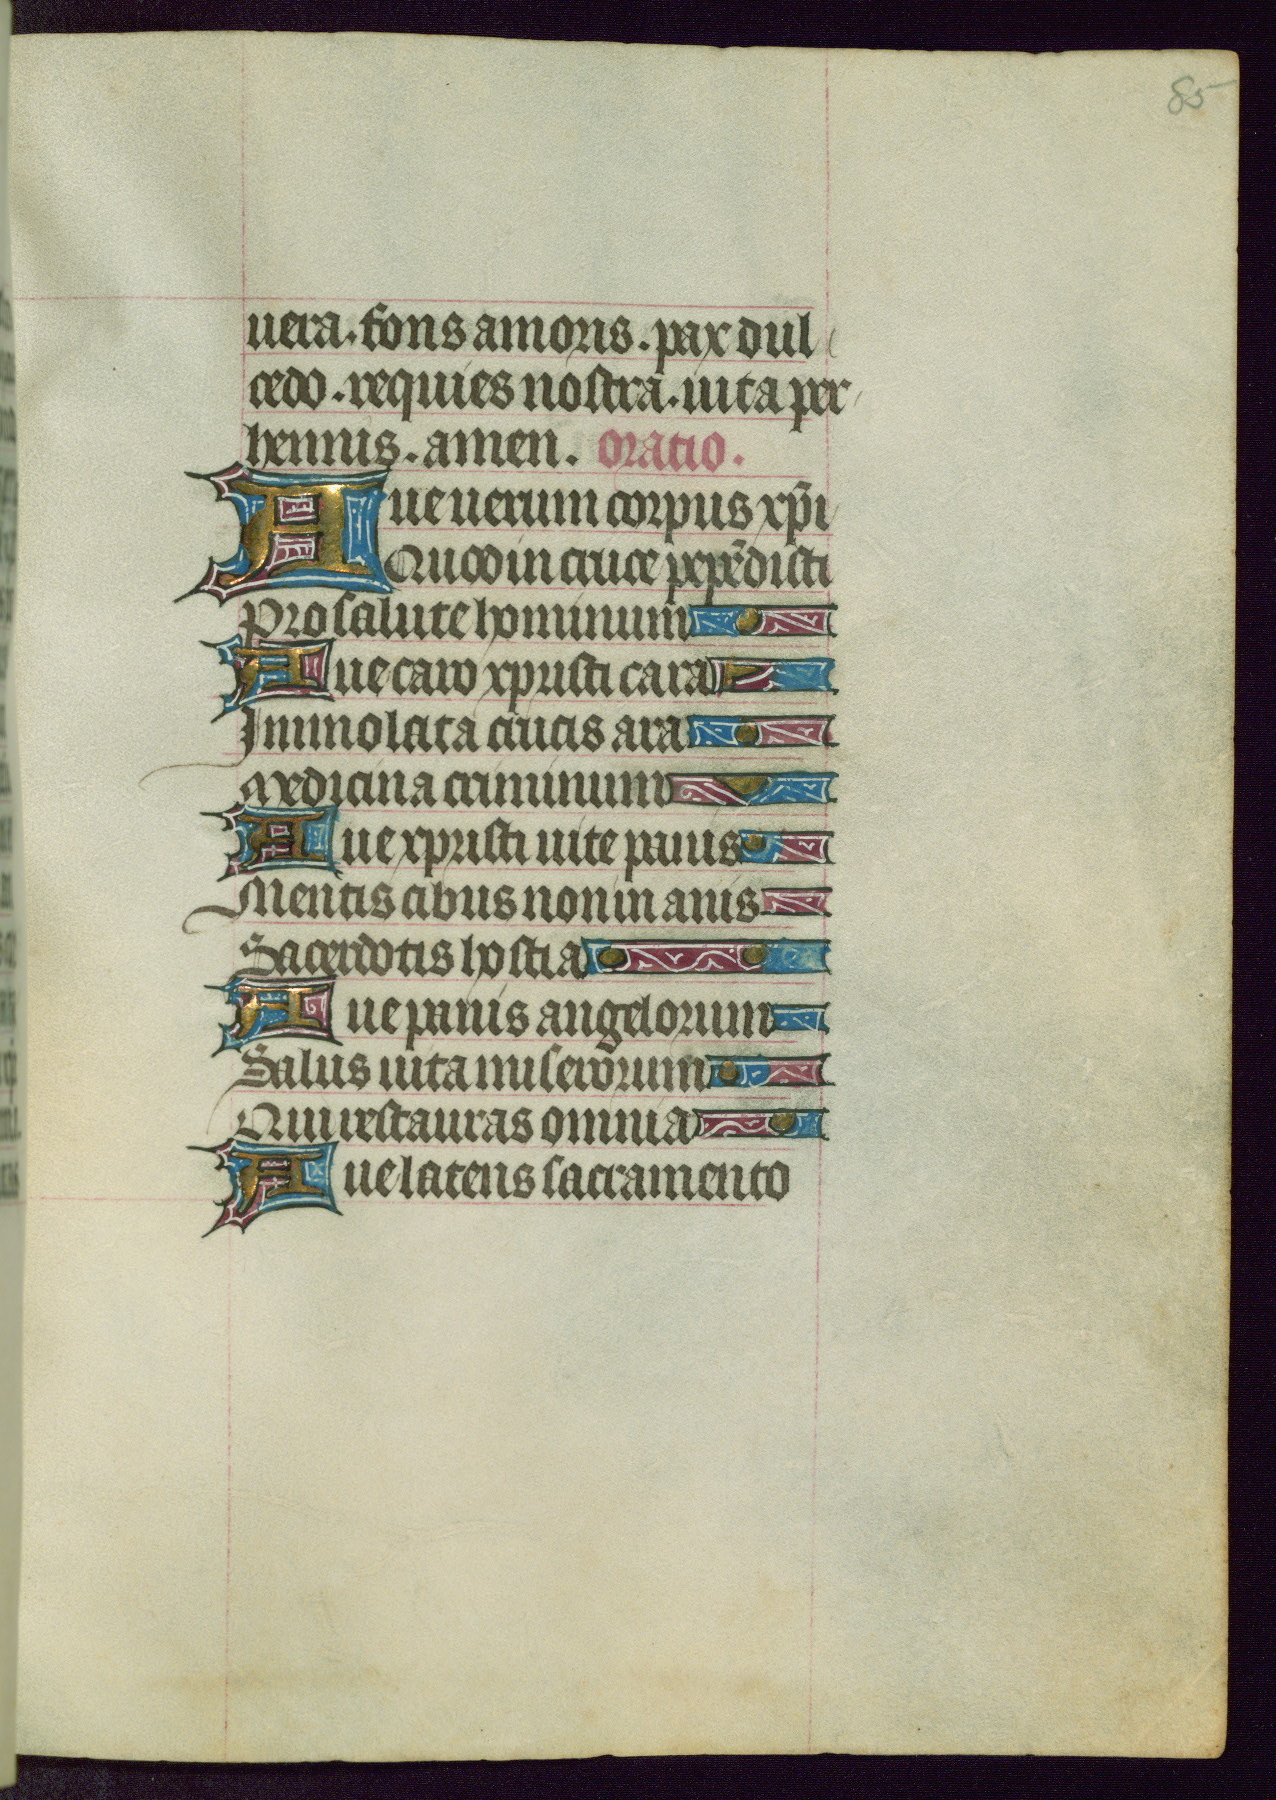 85
uera. fons amoris. pax dul
cedo. requies nostra. uita per
hennis. amen. Oratio.
Aue uerum corpus xp̄i
Quod in cruce pep̄edisti
Pro salute hominum
Aue caro xpristi cara
Immolata crucis ara
Medicina criminum
Aue xpristi uite panis
Mentis cibus non in anis
Sacerdotis hostia
Aue panis angelorum
Salus uita miserorum
Qui restauras omnia
Aue latens sacramento